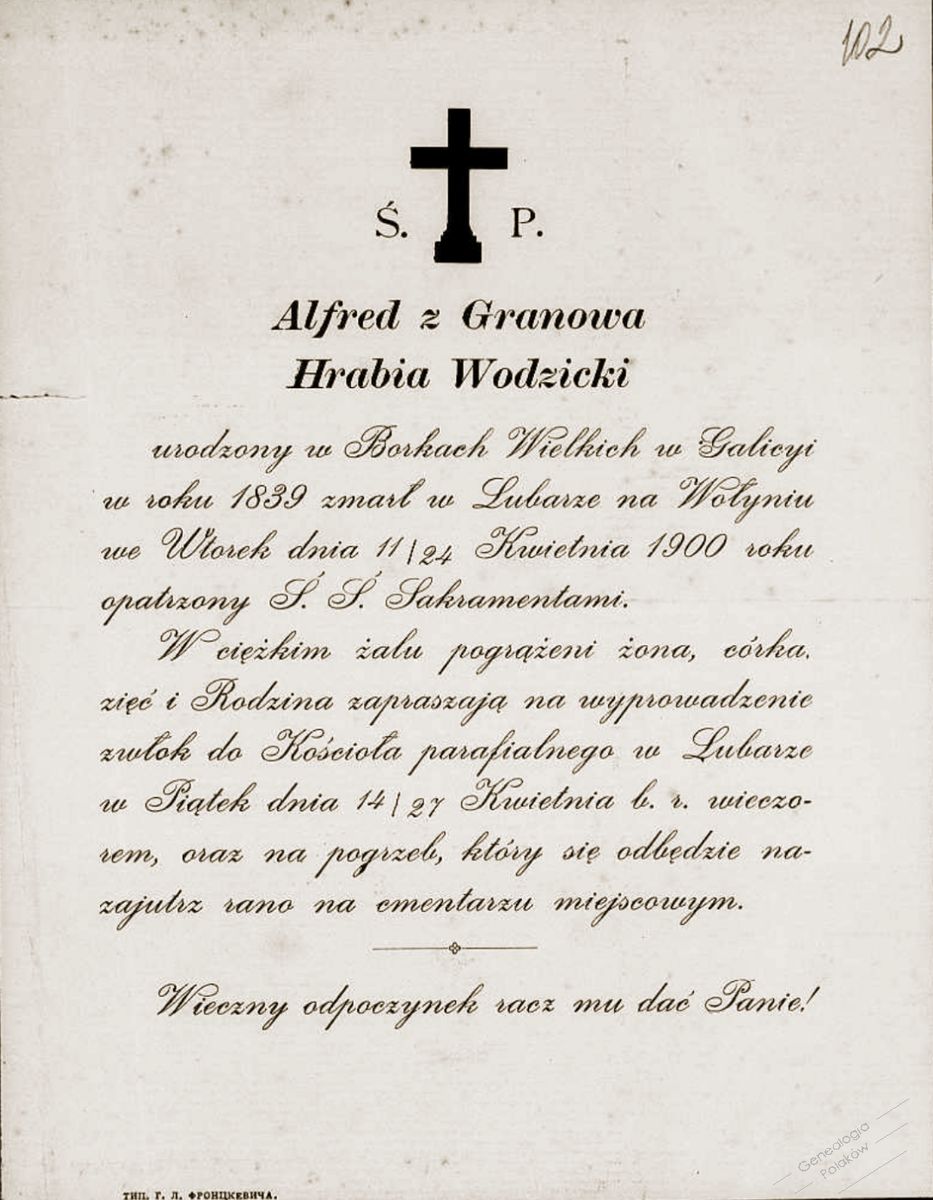 102
Ś. P.
Alfred z Granowa
Hrabia Wodzicki
urodzony w Borkach Wielkich w Galicyi
w roku 1839 zmarł w Lubarze na Wołyniu
we Wtorek dnia 11/24 Kwietnia 1900 roku
opatrzony Ś. Ś. Sakramentami.
W ciężkim żalu pogrążeni żona, córka.
zięć i Rodzina zapraszają na wyprowadzenie
zwłok do Kościoła parafialnego w Lubarze
w Piątek dnia 14/27 Kwietnia b. r. wieczo-
rem, oraz na pogrzeb, który się odbędzie na-
zajutrz rano na cmentarzu miejscowym.
Wieczny odpoczynek racz mu dać Panie!
ТИП. Г. Л. ФРОНЦКЕВИЧА.
Genealogia
Polaków